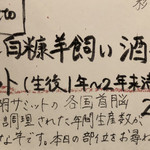 白糠羊飼い酒
ット(生後1年~2年未満
明サミットの各国首脳
調理された年間生産数が
な羊です。本日の部位をお尋ね